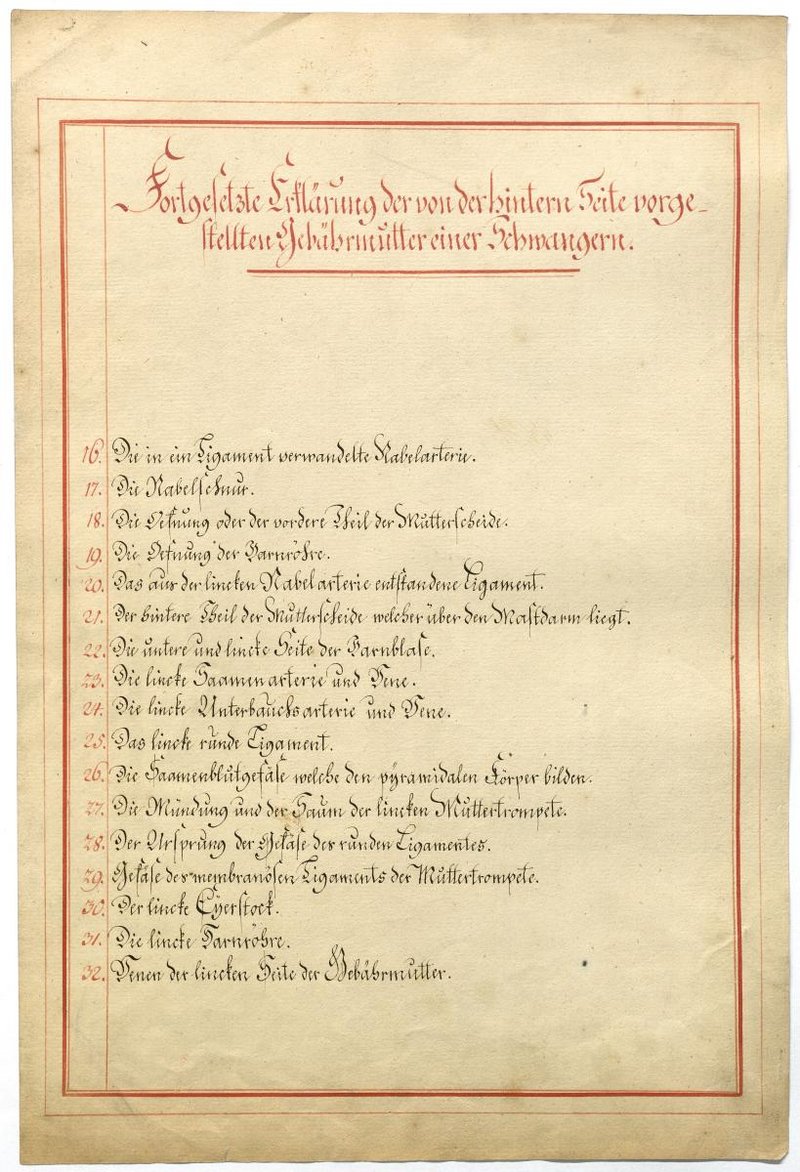 Fortgesetzte Erklärung der von der hintern Seite vorge-
stellten Gebährmutter einer Schwangern.
16. Die in ein Ligament verwandelte Nabelarterie.
17. Die Nabelschnur.
18. Die Oefnung oder der vordere Theil der Mutterscheide.
19. Die Oefnung der Harnröhre.
20. Das aus der lincken Nabelarterie entstandene Ligament.
21. Der hintere Theil der Mutterscheide welcher über den Mastdarm liegt.
22. Die untere und lincke Seite der Harnblase.
23. Die lincke Saamenarterie und Vene.
24. Die lincke Unterbauchsarterie und Vene.
25. Das lincke runde Ligament.
26. Die Saamenblutgefäse welche den pÿramidalen Körper bilden.
27. Die Mündung und der Saum der lincken Muttertrompete.
28. Der Ursprung der Gefäse des runden Ligamentes.
29. Gefäse des membranösen Ligaments der Muttertrompete.
30. Der lincke Eÿerstock.
31. Die lincke Harnröhre.
32. Venen der lincken Seite der Gebährmutter.